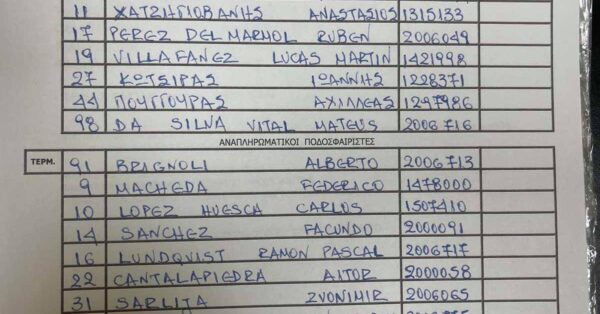 11 ΧΑΤΖΗΓΙΟΒΑΝΗΣ ΑΝΑΣΤΑΣΙΟΣ 1315133
17 PEREZ DEL MARMOL RUBEN 2006049
19 VILLAFANEZ LUCAS MARTIN 1421998
27 ΚΩΤΣΙΡΑΣ ΙΩΑΝΝΗΣ 1228371
44 ΠΟΥΓΓΟΥΡΑΣ ΑΧΙΛΛΕΑΣ 1297986
98 DA SILVA VITAL MATEUS 2006716
ΑΝΑΠΛΗΡΩΜΑΤΙΚΟΙ ΠΟΔΟΣΦΑΙΡΙΣΤΕΣ
ΤΕΡΜ. 91 BRIGNOLI ALBERTO 2006713
9 MACHEDA FEDERICO 1478000
10 LOPEZ HUESCA CARLOS 1507410
14 SANCHEZ FACUNDO 2000091
16 LUNDQVIST RAMON PASCAL 2006717
22 CANTALAPIEDRA AITOR 2000058
31 SARLIJA ZVONIMIR 2006065